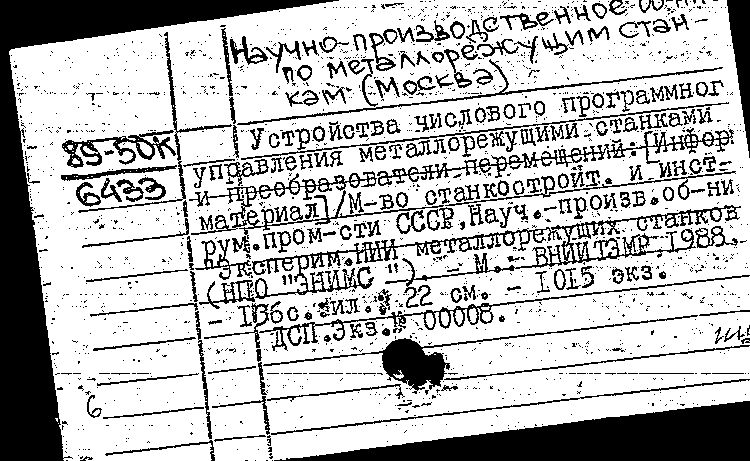 Научно-производственное
по металлорежущим стан-
кам (Москва)
89-50К
6433
Устройства числового программног
управления металлорежущими станками
и преобразователи перемещений: [Инфор
материал]/М-во станкостройт. и инст-
рум.пром-сти СССР, Науч.-произв.об-ни
"Эксперим.НИИ металлорежущих станков
(НПО "ЭНИМС "). - М.: ВНИИТЭМР.1988.
- 136с.:ил.; 22 см. - 1015 экз.
ДСП.Экз.№ 00008.
6